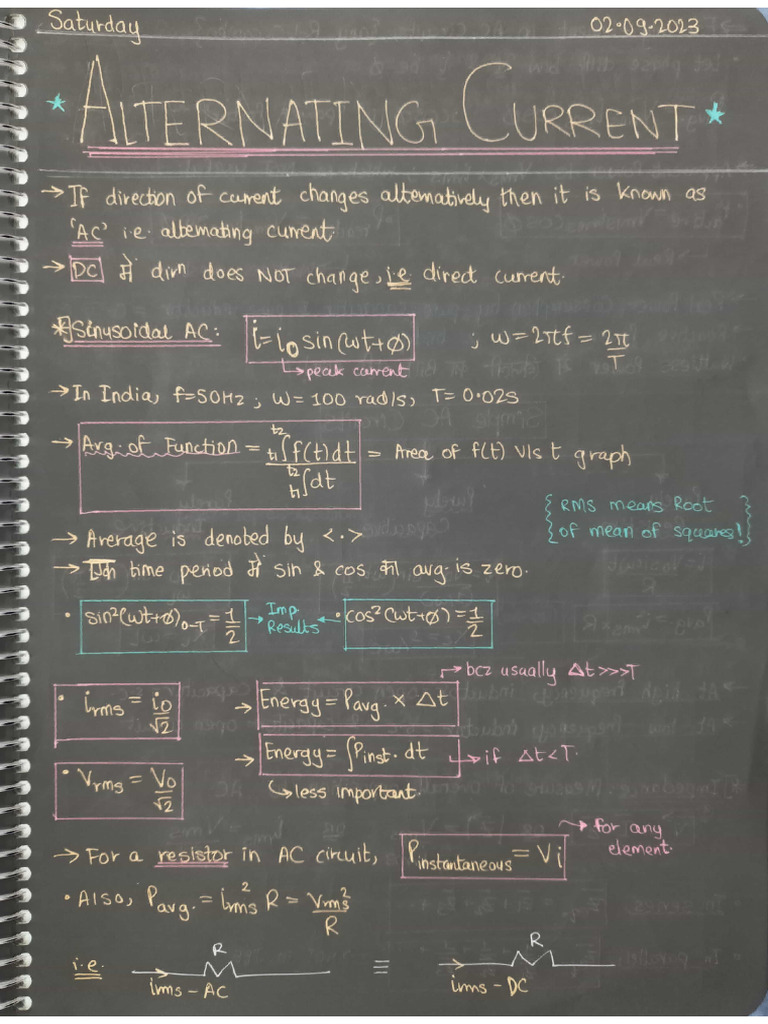 Saturday
02.09.2023
* ALTERNATING CURRENT *
→ If direction of current changes alternatively then it is known as
'AC' i.e. alternating current.
→ DC में dirn does NOT change, i.e. direct current.
* Sinusoidal AC: i = i₀ sin(ωt+ϕ) ; ω = 2πf = 2π/T
↳ peak current
→ In India, f=50Hz ; ω = 100 rad/s, T = 0.02s
→ Avg. of Function = t₁∫t₂ f(t)dt / t₁∫t₂ dt = Area of f(t) V/s t graph
{RMS means Root
of mean of squares!}
→ Average is denoted by <·>
→ एक time period में sin & cos का avg. is zero.
• sin²(ωt+ϕ)₀₋T = 1/2 → Imp. Results ← • cos²(ωt+ϕ) = 1/2
→ bcz usually Δt>>>T
• irms = i₀/√2 → Energy = Pavg. × Δt
→ Energy = ∫Pinst. dt → if Δt<T.
• Vrms = V₀/√2 ↳ less important.
→ for any
element.
→ For a resistor in AC circuit, Pinstantaneous = Vi
• Also, Pavg. = irms² R = Vrms²/R
R R
i.e. ≡
irms - AC irms - DC